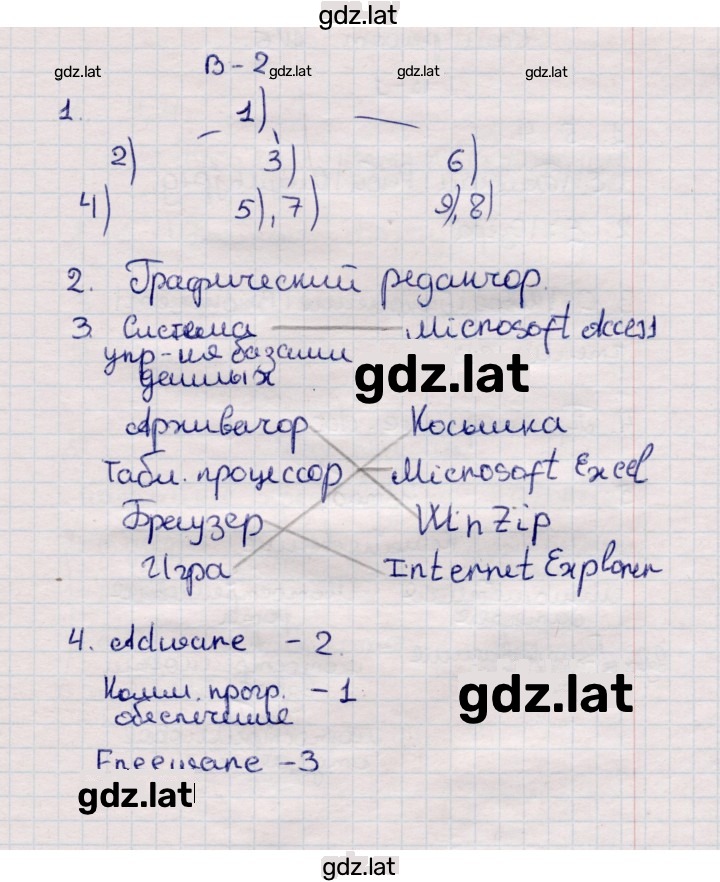 gdz.lat
В - 2
gdz.lat gdz.lat gdz.lat gdz.lat
1. 1)
2) 3) 6)
4) 5), 7) 9), 8)
2. Графический редактор.
3. Система Microsoft Access
упр-ния базами
данных
gdz.lat
Архиватор Косынка
Табл. процессор Microsoft Excel
Браузер WinZip
Игра Internet Explorer
4. Adware - 2.
Комм. прогр. - 1
обеспечение
gdz.lat
Freeware - 3
gdz.lat
gdz.lat